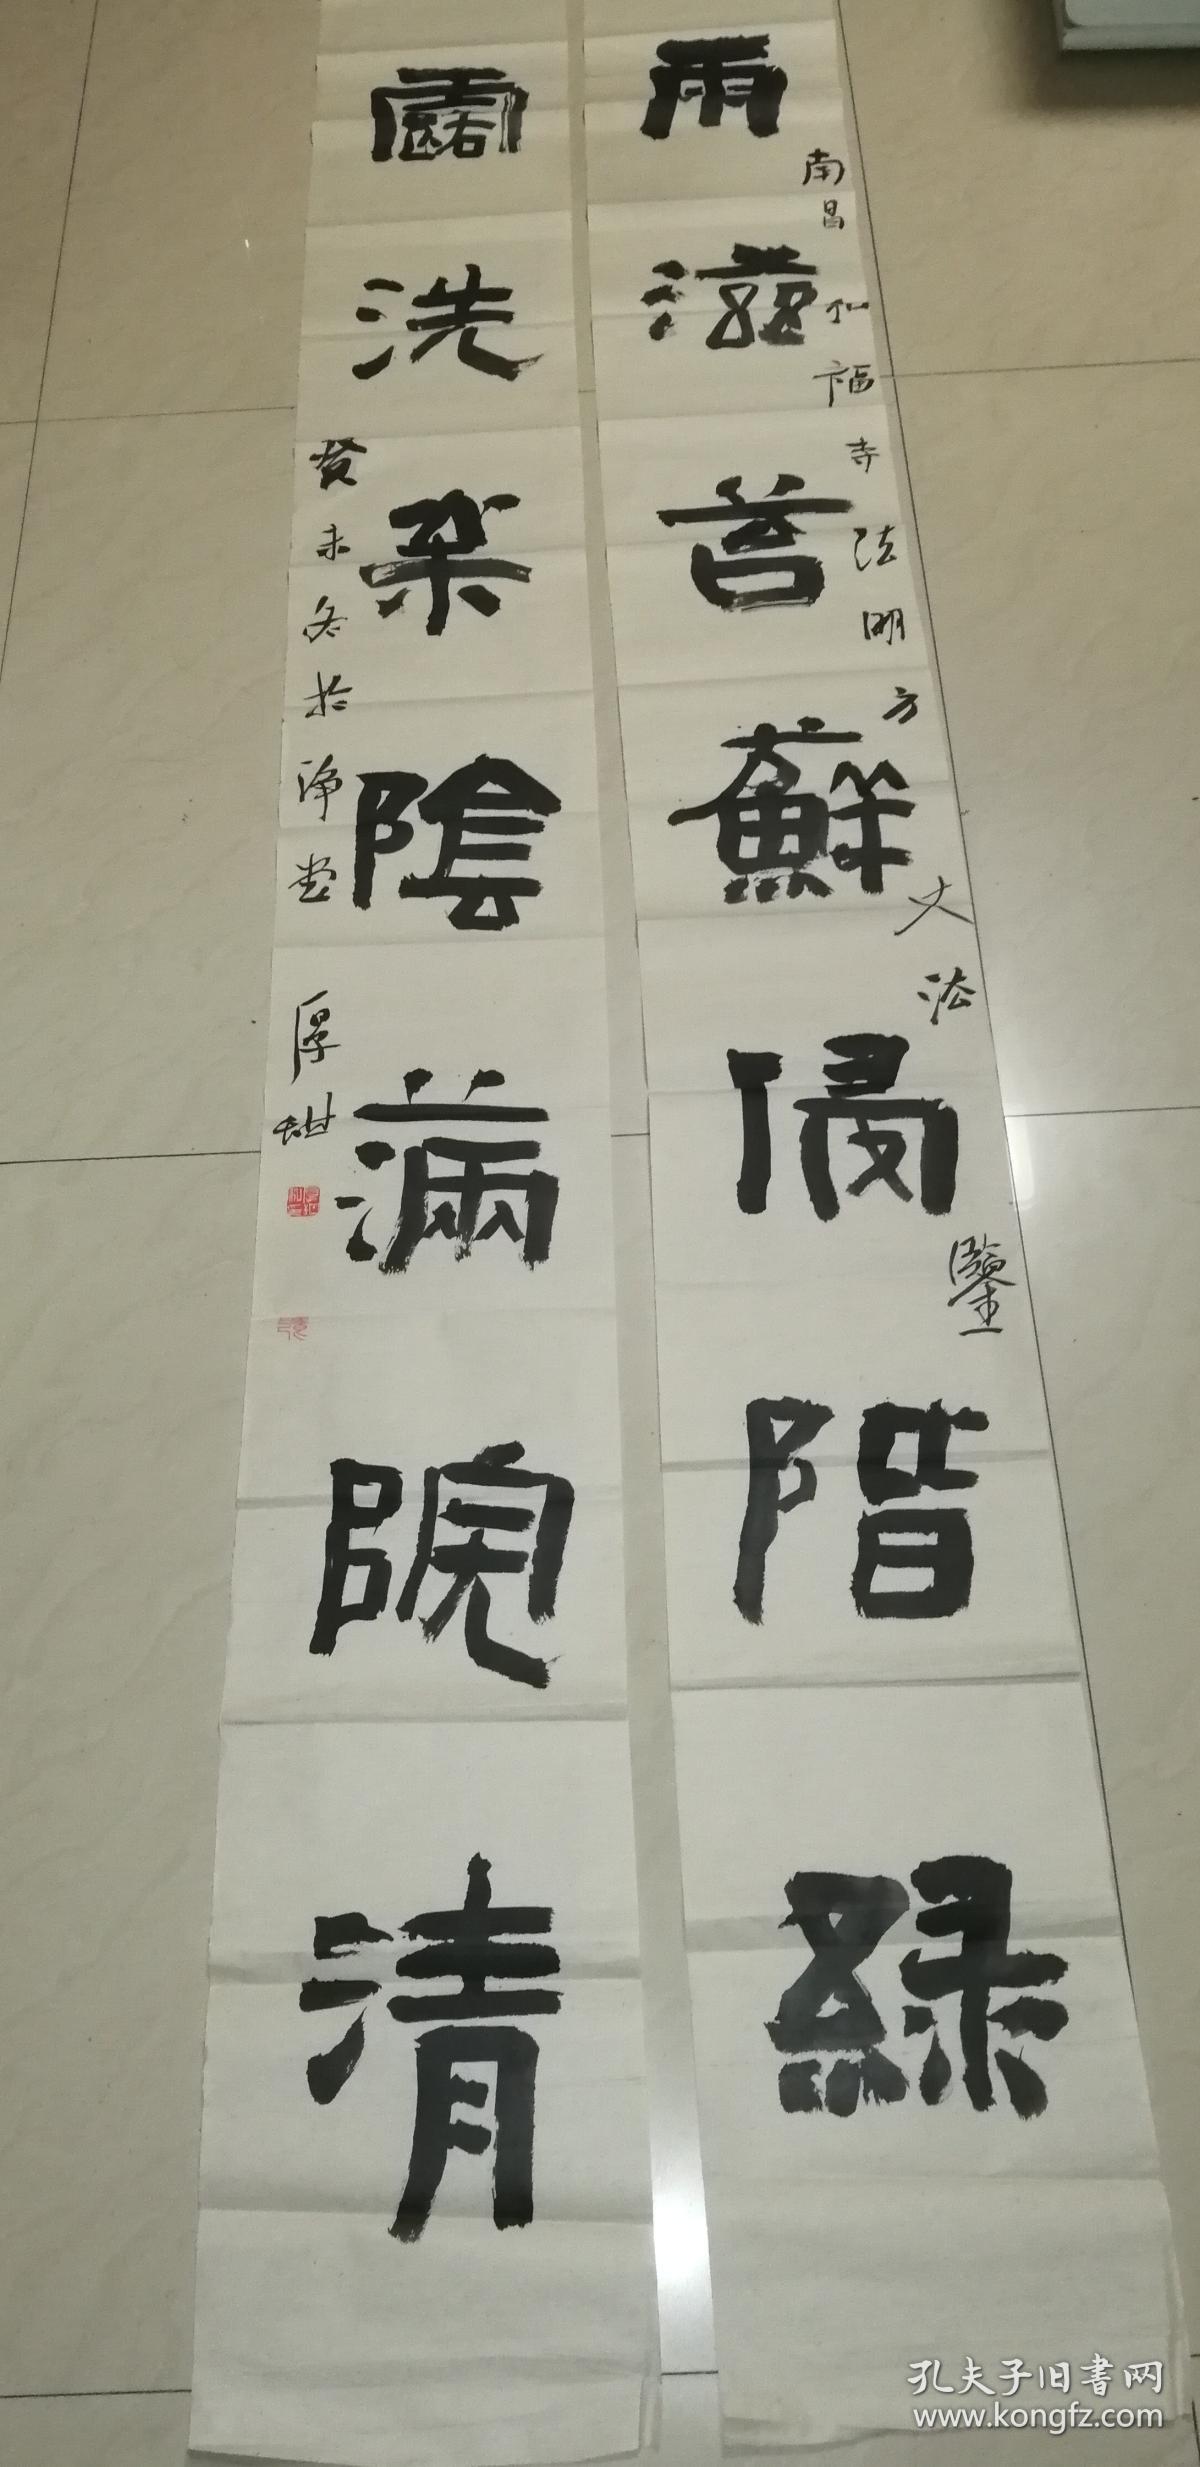 雨滋苔蘚侵階緑
南昌佑福寺法明方丈法鑒
露洗桑陰滿院清
癸未冬於净堂
孔夫子旧書网
www.kongfz.com